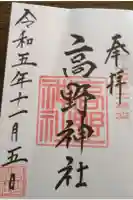 奉拝
高野神社
令和五年十一月五日